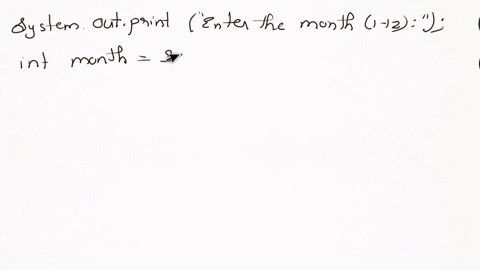 System.out.print ("Enter the month (1-12):");
int month = s